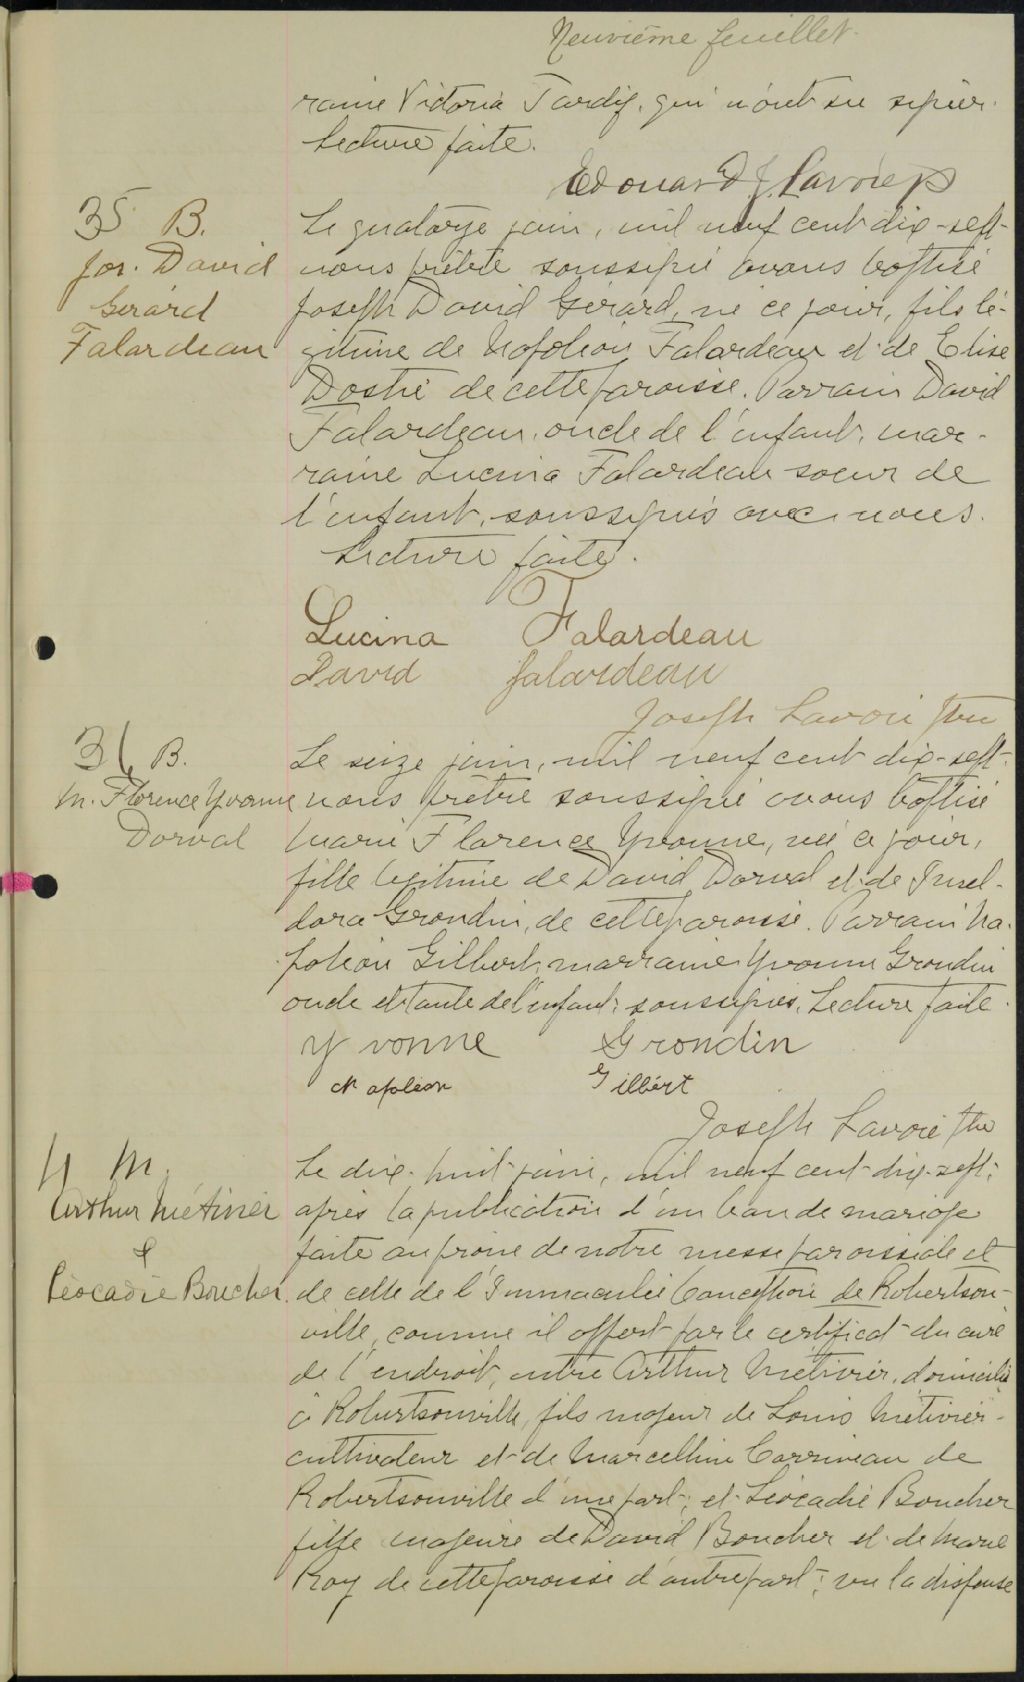 Neuvième feuillet.
raine Victoria Tardif, qui n'ont su signer.
Lecture faite.
Edouard J. Lavoie p
35 B.
Jos. David
Gérard
Falardeau
Le quatorze juin, mil neuf cent dix-sept
nous prêtre soussigné avons baptisé
Joseph David Gérard, né ce jour, fils lé-
gitime de Napoléon Falardeau et de Elise
Dostie de cette paroisse. Parrain David
Falardeau, oncle de l'enfant, mar-
raine Lucina Falardeau soeur de
l'enfant, soussignés avec nous.
Lecture faite.
Lucina Falardeau
David falardeau
Joseph Lavoie ptre
36 B.
M. Florence Yvonne
Dorval
Le seize juin, mil neuf cent dix-sept
nous prêtre soussigné avons baptisé
Marie Florence Yvonne, née ce jour,
fille légitime de David Dorval et de
dora Grondin, de cette paroisse. Parrain Na-
poléon Gilbert, marraine Yvonne Grondin
oncle et tante de l'enfant, soussignés. Lecture faite.
Yvonne Grondin
Napoléon Gilbert
Joseph Lavoie ptre
M.
Arthur Métivier
&
Léocadie Boucher
Le dix-huit juin, mil neuf cent dix-sept,
après la publication d'un ban de mariage
faite au prône de notre messe paroissiale et
de celle de l'Immaculée Conception de Robertson-
ville, comme il appert par le certificat du curé
de l'endroit, entre Arthur Métivier, domicilié
à Robertsonville, fils majeur de Louis Métivier
cultivateur et de Marcelline Carrineau de
Robertsonville d'une part; et Léocadie Boucher
fille majeure de David Boucher et de Marie
Roy de cette paroisse d'autre part; vu la dispense